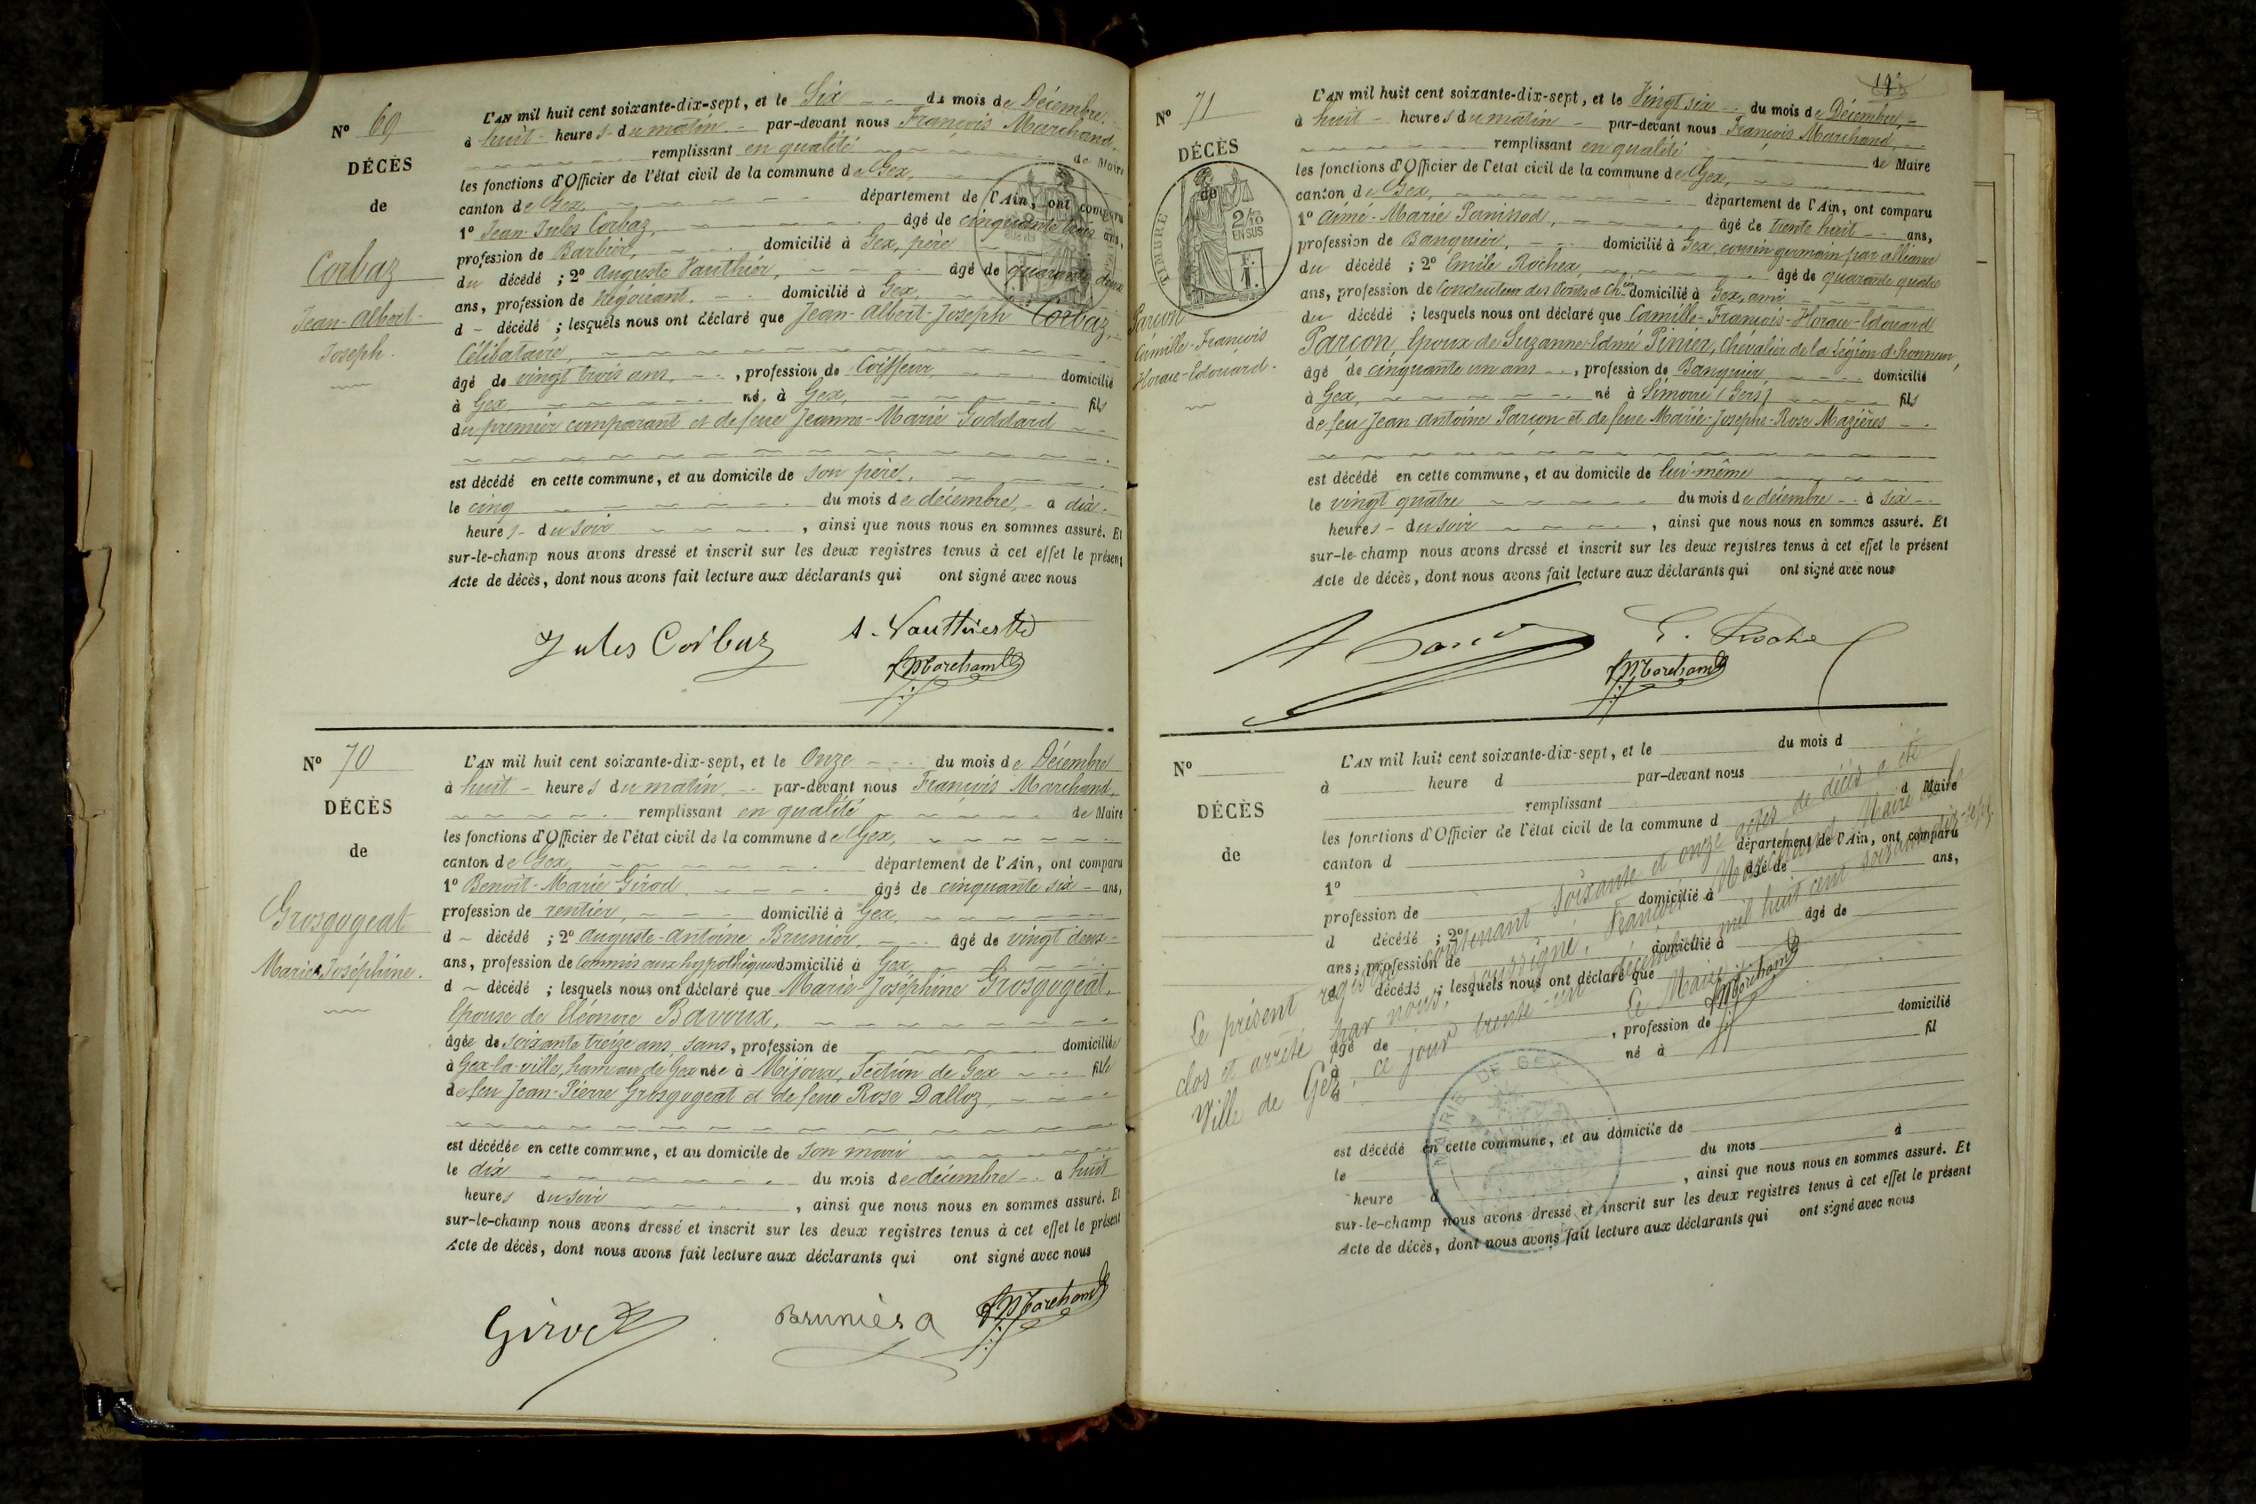 Nº 69
DÉCÈS
de
Corbaz
Jean-Albert-
Joseph.
L'AN mil huit cent soixante-dix-sept, et le Six du mois de Décembre,
à huit heures du matin par-devant nous François Marchand,
remplissant en qualité de Maire
les fonctions d'Officier de l'état civil de la commune de Gex,
canton de Gex, département de l'Ain, ont comparu
1º Jean-Jules Corbaz, âgé de cinquante trois ans,
profession de Barbier, domicilié à Gex, père
du décédé ; 2º Auguste Vauthier, âgé de quarante deux
ans, profession de Négociant domicilié à Gex,
d décédé ; lesquels nous ont déclaré que Jean-Albert-Joseph Corbaz,
Célibataire,
âgé de vingt trois ans, profession de Coiffeur domicilié
à Gex, né à Gex, fils
du premier comparant et de feue Jeanne-Marie Goddard
est décédé en cette commune, et au domicile de son père,
le cinq du mois de décembre, à dix
heures du soir, ainsi que nous nous en sommes assuré. Et
sur-le-champ nous avons dressé et inscrit sur les deux registres tenus à cet effet le présent
Acte de décès, dont nous avons fait lecture aux déclarants qui ont signé avec nous
Jules Corbaz
A. Vauthier
f Marchand
Nº 70
DÉCÈS
de
Grosgogeat
Marie Joséphine.
L'AN mil huit cent soixante-dix-sept, et le Onze du mois de Décembre
à huit heures du matin, par-devant nous François Marchand,
remplissant en qualité de Maire
les fonctions d'Officier de l'état civil de la commune de Gex,
canton de Gex, département de l'Ain, ont comparu
1º Benoit-Marie Girod âgé de cinquante six ans,
profession de rentier, domicilié à Gex,
d décédé ; 2º Auguste-Antoine Brunier, âgé de vingt deux
ans, profession de Commis aux hypothèques domicilié à Gex
d décédé ; lesquels nous ont déclaré que Marie-Joséphine Grosgogeat,
Epouse de Eléonore Bavoux,
âgée de soixante treize ans, sans, profession de domiciliée
à Gex-la-ville, hameau de Gex née à Mijoux, Section de Gex fille
de feu Jean-Pierre Grosgogeat et de feue Rose Dalloz,
est décédée en cette commune, et au domicile de son mari
le dix du mois de décembre à huit
heures du soir, ainsi que nous nous en sommes assuré. Et
sur-le-champ nous avons dressé et inscrit sur les deux registres tenus à cet effet le présent
Acte de décès, dont nous avons fait lecture aux déclarants qui ont signé avec nous
Girod
Brunier a
f Marchand
Nº 71
DÉCÈS
de
TIMBRE
2/10
EN SUS
Parcon
Camille-François
Horace-Edouard.
L'AN mil huit cent soixante-dix-sept, et le Vingt six du mois de Décembre,
à huit heures du matin par-devant nous François Marchand,
remplissant en qualité de Maire
les fonctions d'Officier de l'état civil de la commune de Gex,
canton de Gex, département de l'Ain, ont comparu
1º Aimé-Marie Paninod, âgé de trente huit ans,
profession de Banquier, domicilié à Gex, cousin germain par alliance
du décédé ; 2º Emile Rochex, âgé de quarante quatre
ans, profession de Conducteur des Ponts et Ch. domicilié à Gex, ami
du décédé ; lesquels nous ont déclaré que Camille-François-Horace-Edouard
Parcon, Epoux de Suzanne-Edmé Pinier, Chevalier de la Légion d'honneur,
âgé de cinquante un ans, profession de Banquier, domicilié
à Gex, né à Simorre (Gers) fils
de feu Jean Antoine Parcon et de feue Marie-Josephe-Rose Mazières
est décédé en cette commune, et au domicile de lui-même
le vingt quatre du mois de décembre à six
heures du soir, ainsi que nous nous en sommes assuré. Et
sur-le-champ nous avons dressé et inscrit sur les deux registres tenus à cet effet le présent
Acte de décès, dont nous avons fait lecture aux déclarants qui ont signé avec nous
E. Roche
f Marchand
Nº
DÉCÈS
de
L'AN mil huit cent soixante-dix-sept, et le du mois d
à heure d par-devant nous
remplissant d Maire
les fonctions d'Officier de l'état civil de la commune d
canton d département de l'Ain, ont comparu
1º âgé de ans,
profession de domicilié à
d décédé ; 2º âgé de
ans, profession de domicilié à
d décédé ; lesquels nous ont déclaré que
âgé de , profession de domicilié
à né à fil
d
est décédé en cette commune, et au domicile de
le du mois à
heure d , ainsi que nous nous en sommes assuré. Et
sur-le-champ nous avons dressé et inscrit sur les deux registres tenus à cet effet le présent
Acte de décès, dont nous avons fait lecture aux déclarants qui ont signé avec nous
Le présent registre contenant soixante et onze actes de décès a été
clos et arrêté par nous, soussigné, François Marchand Maire de la
Ville de Gex, ce jour trente-un décembre mil huit cent soixante-dix-sept.
Le Maire
f Marchand
MAIRIE DE GEX